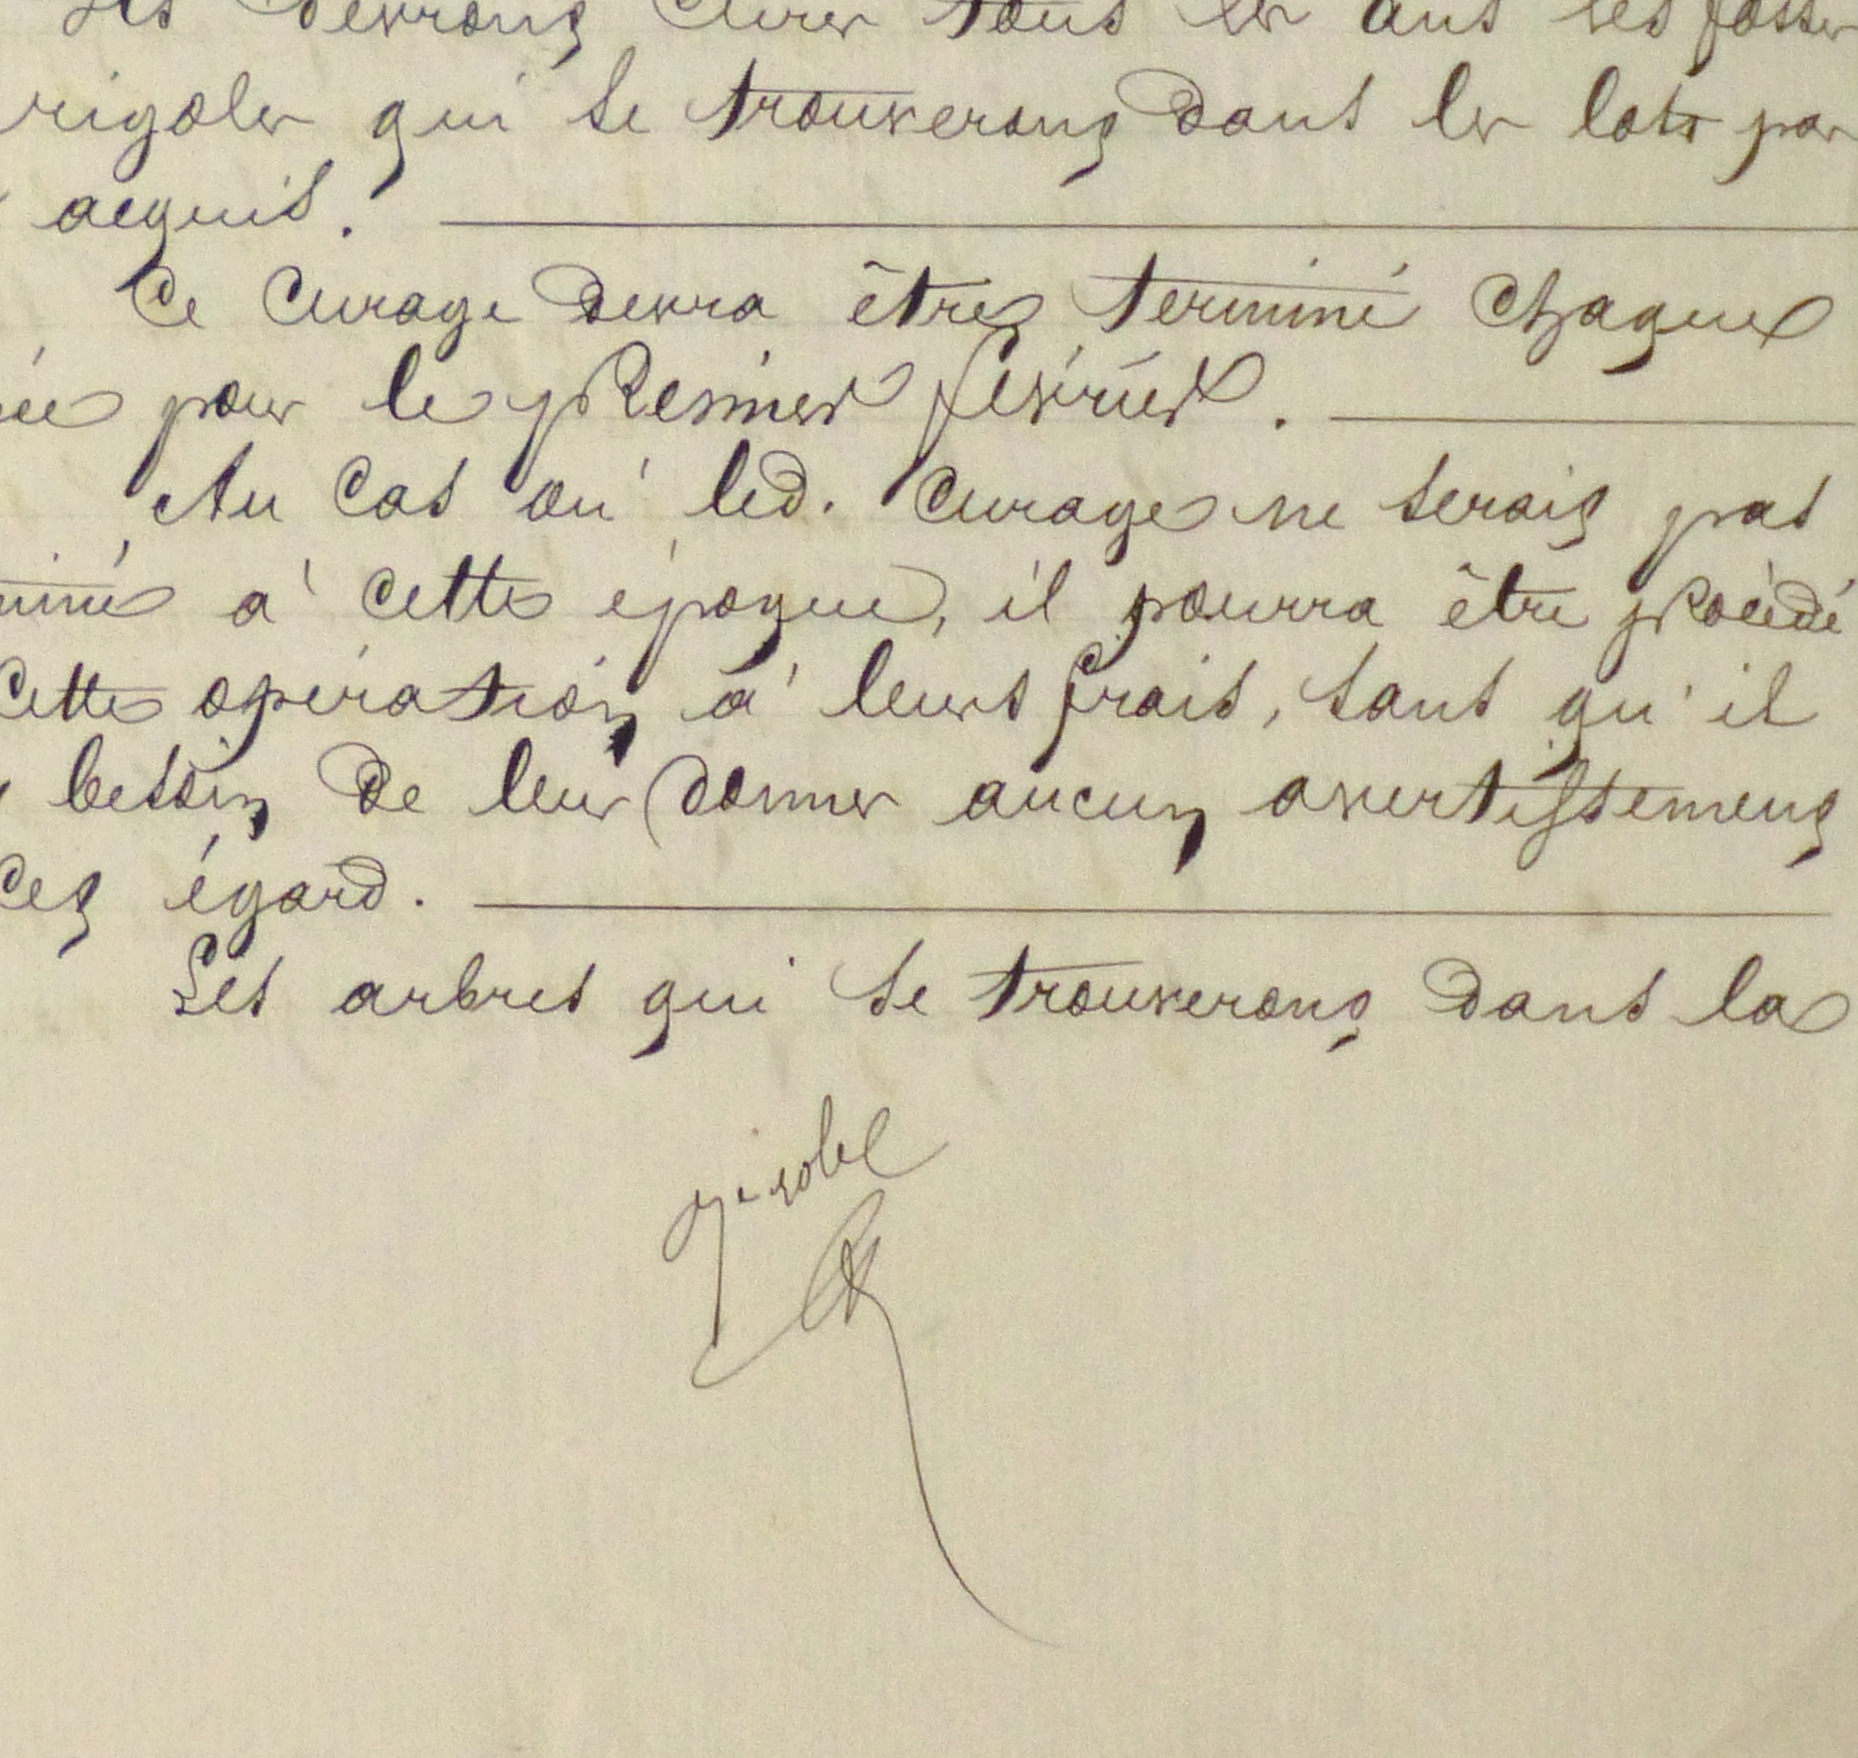 Ils devront curer tous les ans les fossés
rigoles qui se trouveront dans les lots par
acquis.
Ce curage devra être terminé chaque
ée pour le premier février.
Au cas où led. curage ne serait pas
miné à cette époque, il pourra être procédé
cette opération à leurs frais, sans qu'il
besoin de leur donner aucun avertissement
cet égard.
Les arbres qui se trouveront dans la